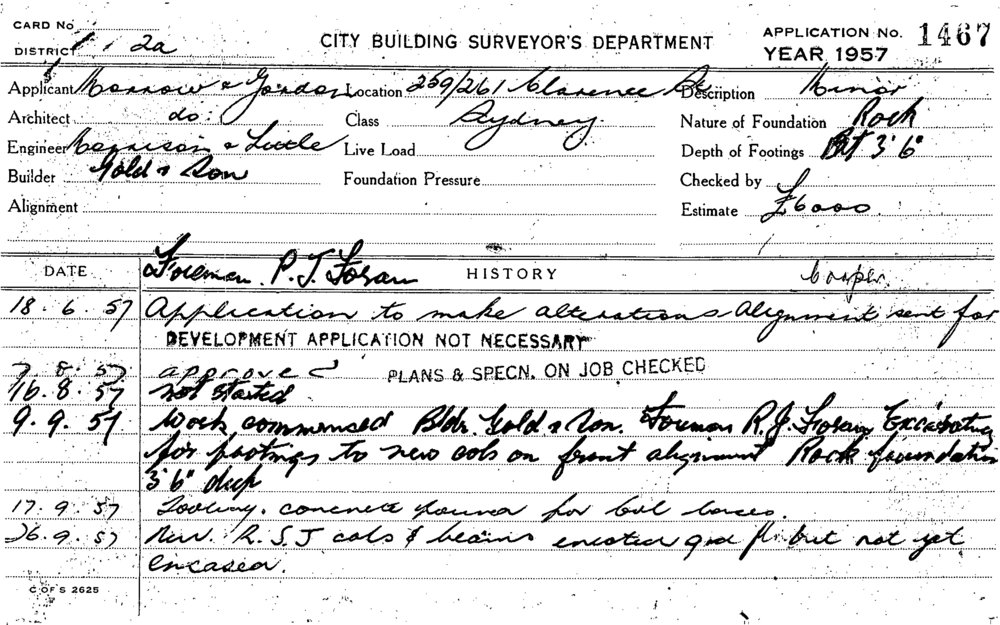 CARD No 1
DISTRICT 2a
CITY BUILDING SURVEYOR'S DEPARTMENT
APPLICATION No. 1467
YEAR 1957
Applicant Morrow & Gordon Location 259/261 Clarence Description Minor
Architect do: Class Sydney. Nature of Foundation Rock
Engineer Morrison & Little Live Load Depth of Footings 3' 6"
Builder Gold & Son Foundation Pressure Checked by
Alignment Estimate £6000
DATE Foreman. P. J. Foran HISTORY Cooper.
18. 6. 57 Application to make alterations Alignment sent for
DEVELOPMENT APPLICATION NOT NECESSARY
7. 8. 57 approved PLANS & SPECN. ON JOB CHECKED
16. 8. 57 not started
9. 9. 57 Work commenced Bldr. Gold & Son. Foreman R. J. Foran Excavating
for footings to new cols on front alignment Rock foundation
3' 6" deep
17. 9. 57 Footing. concrete poured for bases.
26. 9. 57 New. R. S. J cols & beams erected grd fl. but not yet
encased.
C OF S 2625